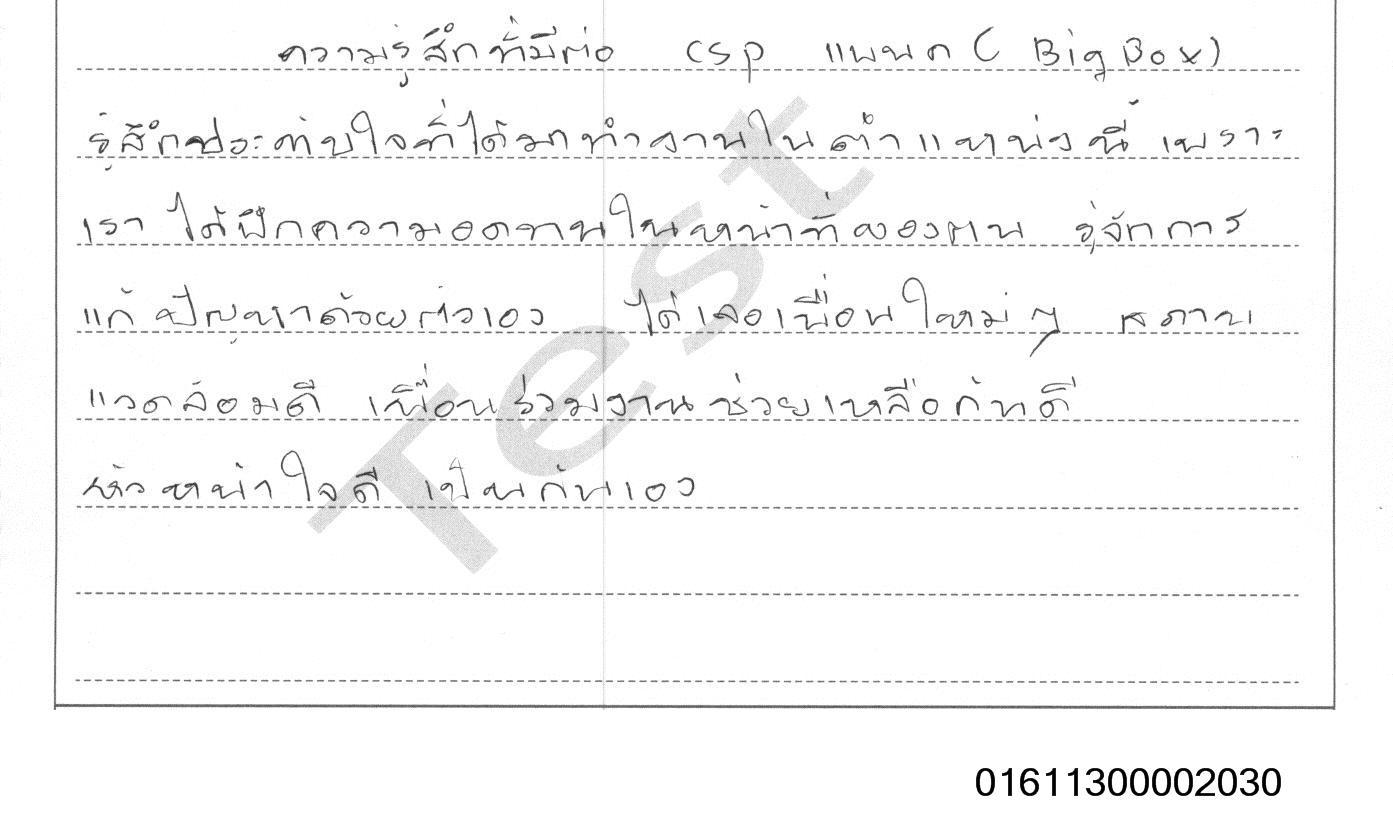 ความรู้สึกที่มีต่อ CSP แผนก (Big Box)
รู้สึกประทับใจที่ได้มาทำงานในตำแหน่งนี้ เพราะ
เรา ได้ฝึกความอดทนในหน้าที่ของตน รู้จักการ
แก้ปัญหาด้วยตัวเอง ได้เจอเพื่อนใหม่ๆ สภาพ
แวดล้อมดี เพื่อนร่วมงานช่วยเหลือกันดี
หัวหน้าใจดี เป็นกันเอง
Test
01611300002030